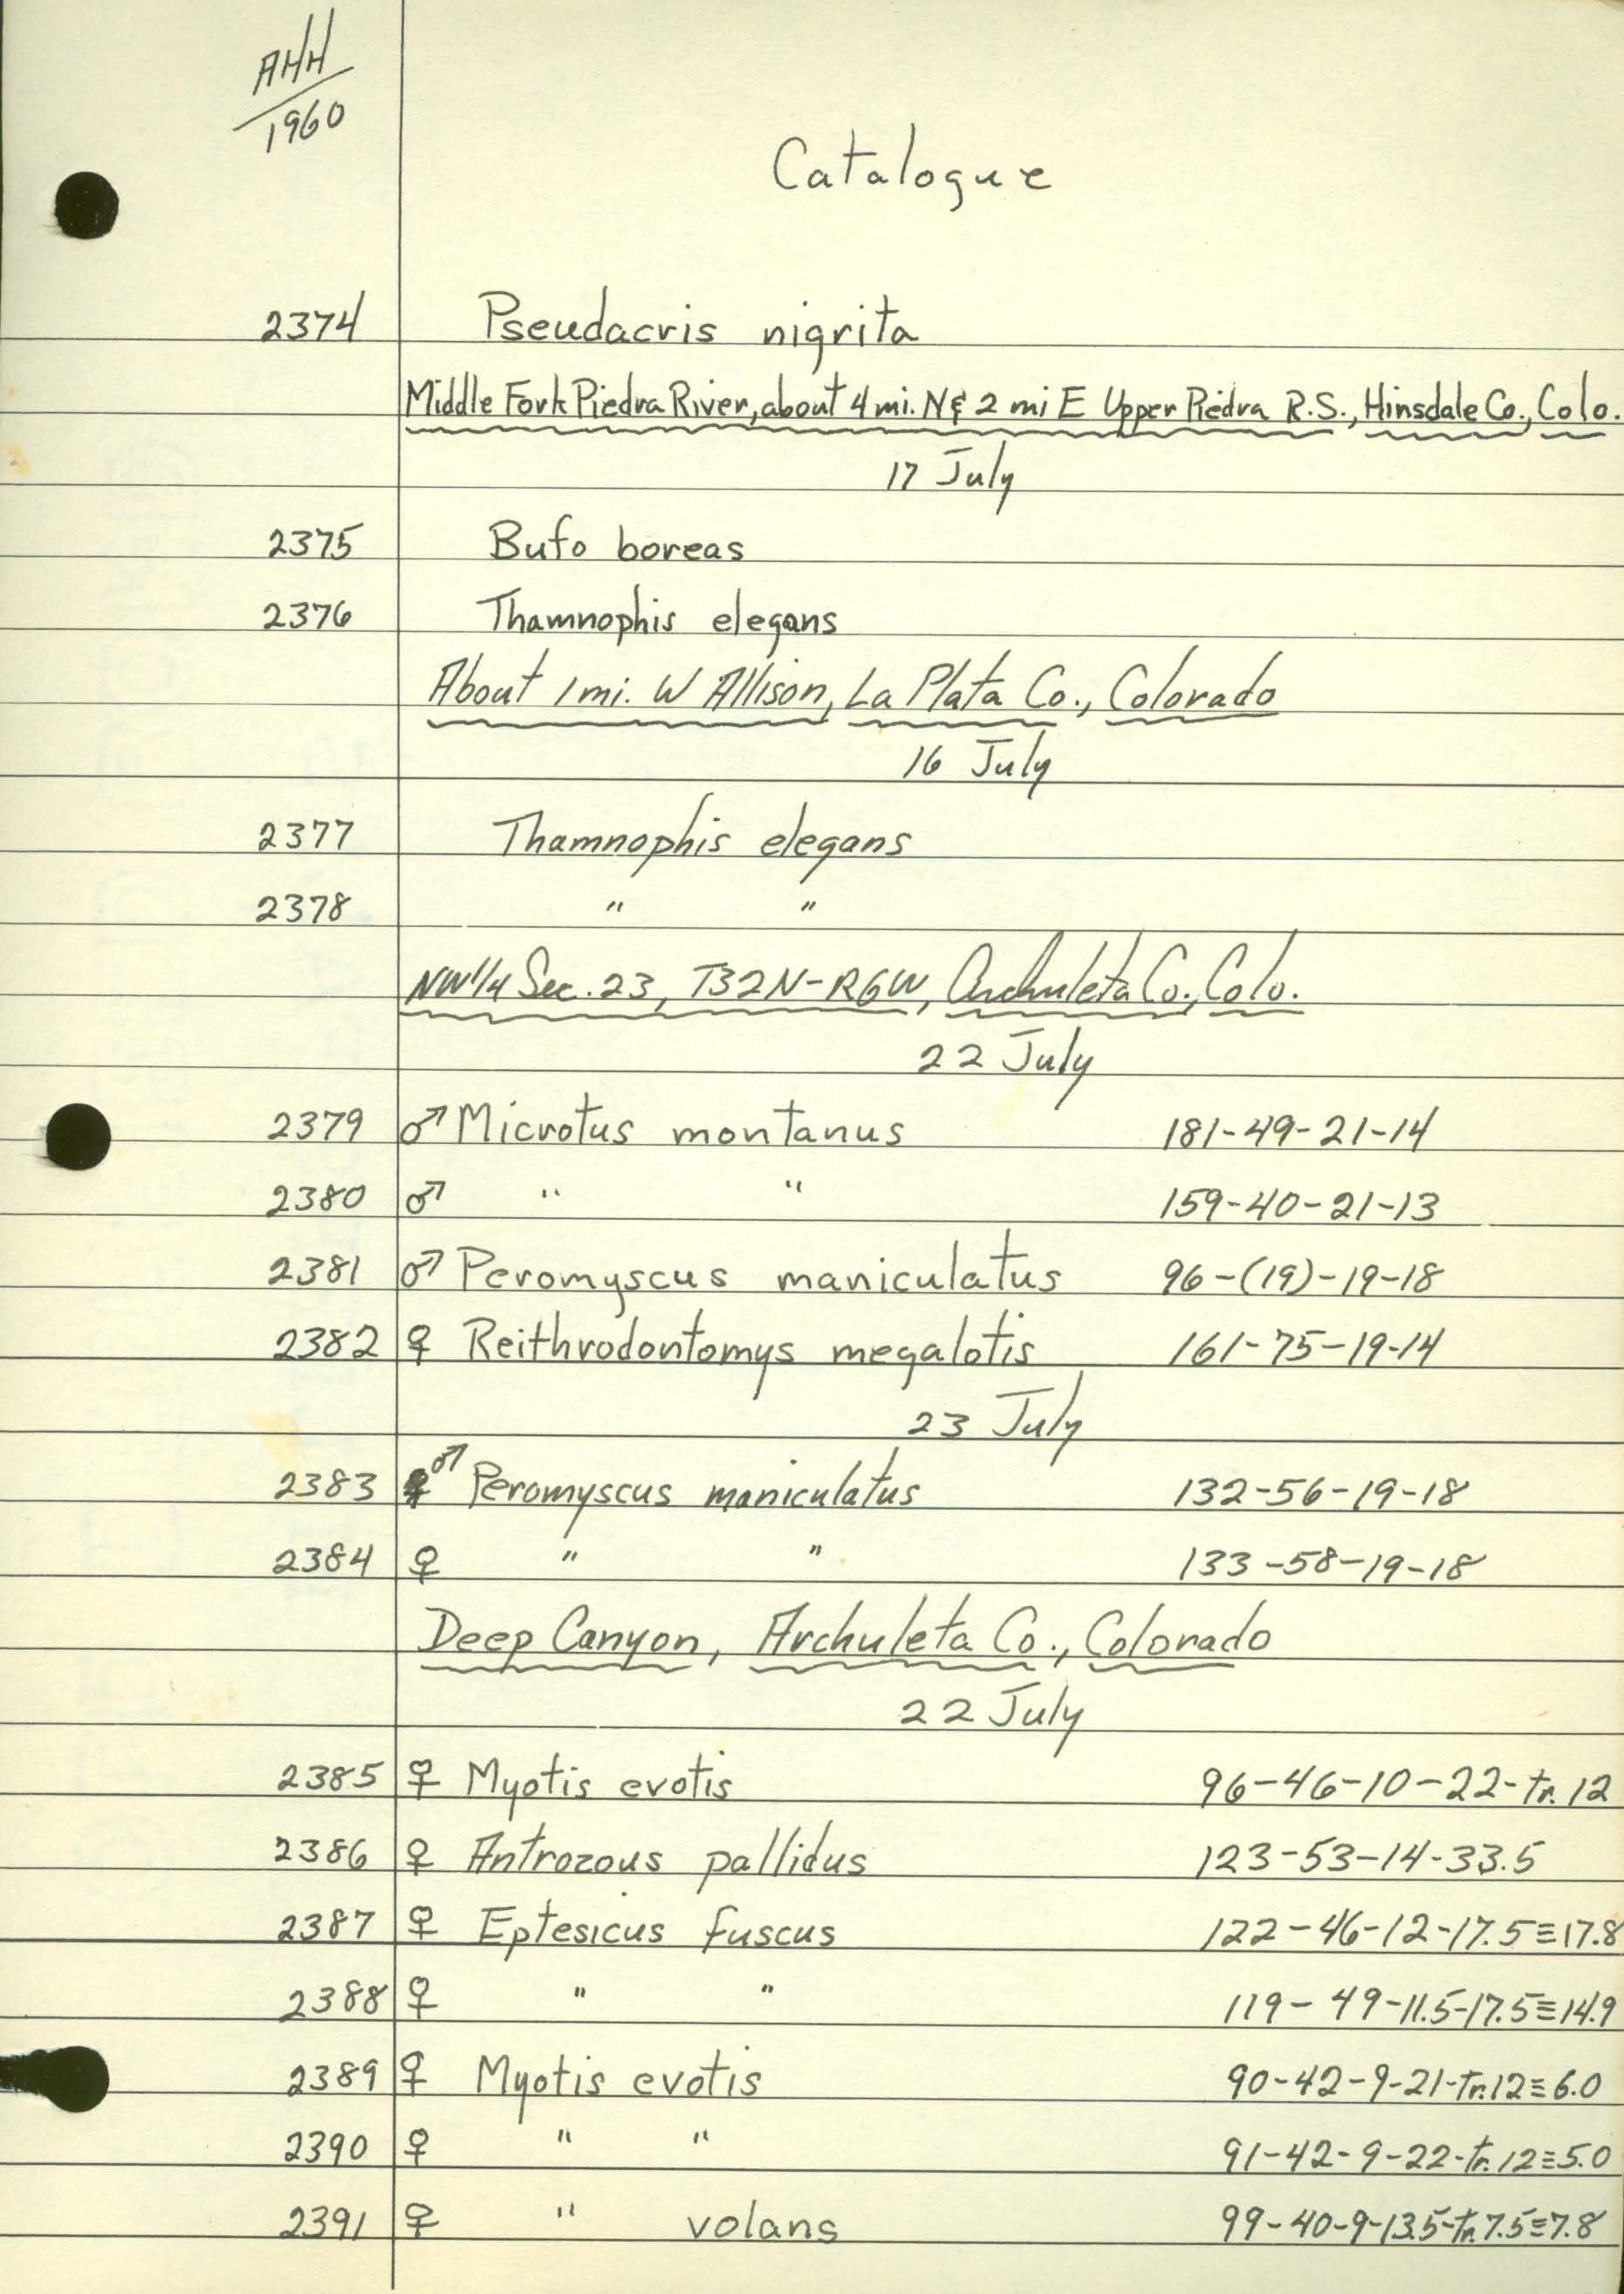 AHH
1960
Catalogue
2374 Pseudacris nigrita
Middle Fork Piedra River, about 4 mi. N & 2 mi E Upper Piedra R.S., Hinsdale Co., Colo.
17 July
2375 Bufo boreas
2376 Thamnophis elegans
About 1 mi. W Allison, La Plata Co., Colorado
16 July
2377 Thamnophis elegans
2378 " "
NW 1/4 Sec. 23, T32N-R6W, Archuleta Co., Colo.
22 July
2379 ♂ Microtus montanus 181-49-21-14
2380 ♂ " " 159-40-21-13
2381 ♂ Peromyscus maniculatus 96-(19)-19-18
2382 ♀ Reithrodontomys megalotis 161-75-19-14
23 July
2383 ♂ Peromyscus maniculatus 132-56-19-18
2384 ♀ " " 133-58-19-18
Deep Canyon, Archuleta Co., Colorado
22 July
2385 ♀ Myotis evotis 96-46-10-22-tr. 12
2386 ♀ Antrozous pallidus 123-53-14-33.5
2387 ♀ Eptesicus fuscus 122-46-12-17.5≡17.8
2388 ♀ " " 119-49-11.5-17.5≡14.9
2389 ♀ Myotis evotis 90-42-9-21-tr.12≡6.0
2390 ♀ " " 91-42-9-22-tr.12≡5.0
2391 ♀ " volans 99-40-9-13.5-tr.7.5≡7.8